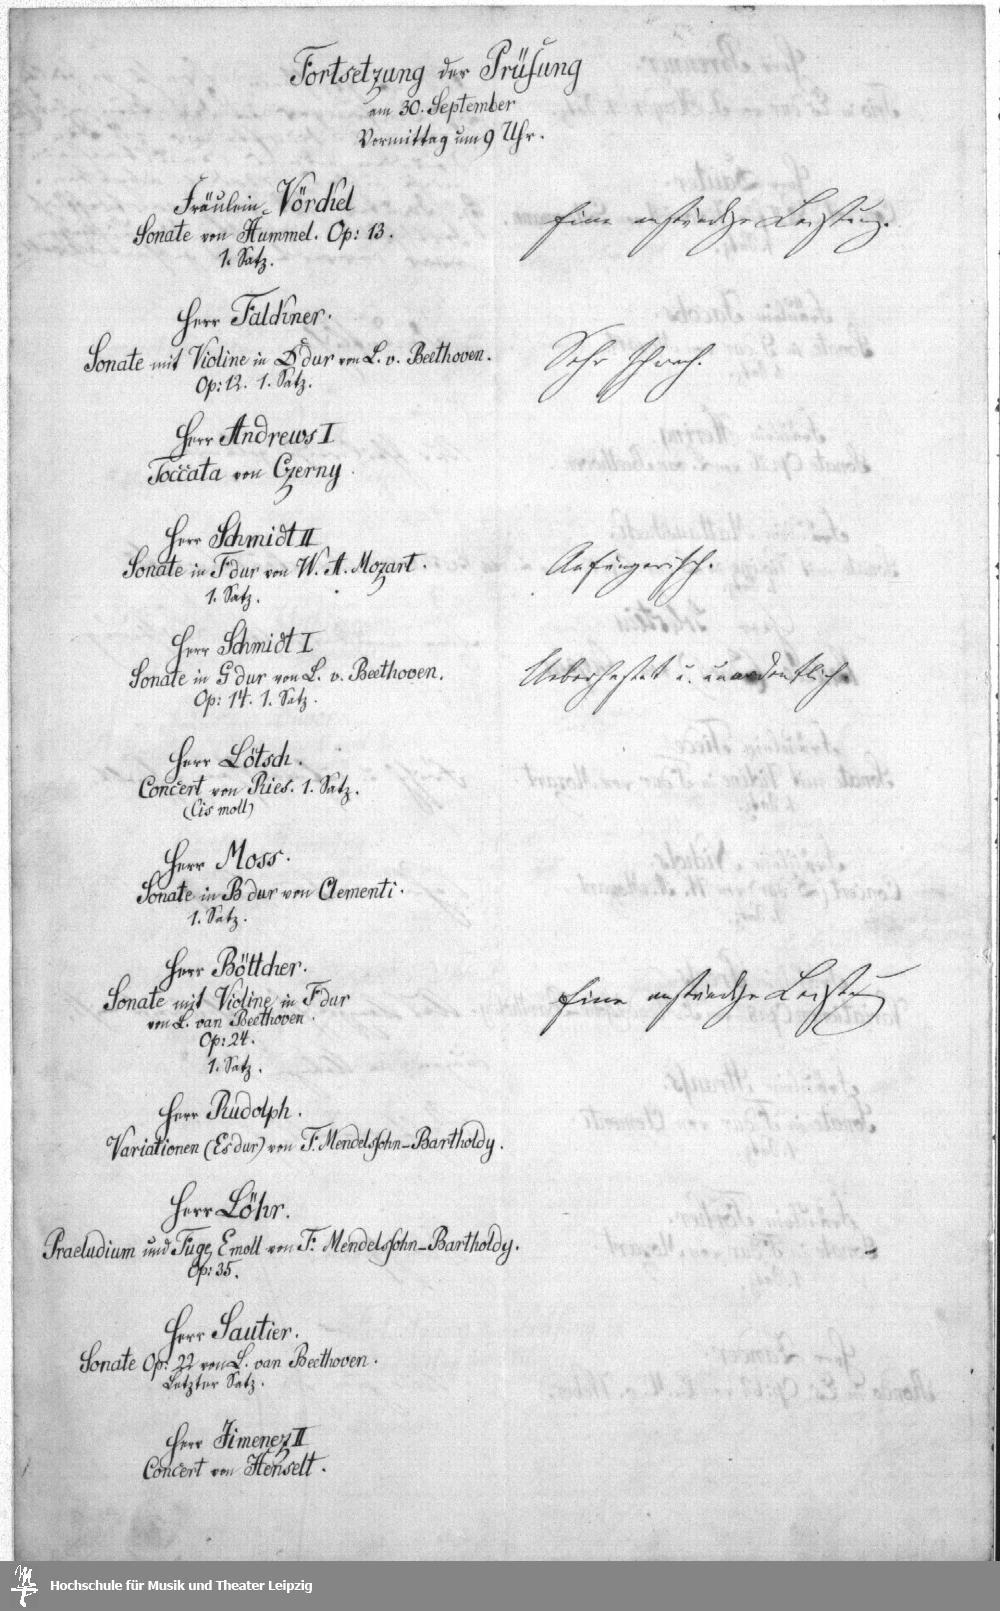 Fortsetzung der Prüfung
am 30. September
Vormittag um 9 Uhr.
Fräulein Vörckel
Sonate von Hummel. Op: 13.
1. Satz.
Eine anständige Leistung.
Herr Falckner.
Sonate mit Violine in D dur von L. v. Beethoven.
Op: 12. 1. Satz.
Sehr schwach.
Herr Andrews I
Toccata von Czerny.
Herr Schmidt II
Sonate in F dur von W. A. Mozart.
1. Satz.
Anfängerisch.
Herr Schmidt I
Sonate in G dur von L. v. Beethoven.
Op: 14. 1. Satz.
Ueberhastet u. unordentlich.
Herr Lötsch.
Concert von Ries. 1. Satz.
(Cis moll)
Herr Moss.
Sonate in B dur von Clementi.
1. Satz.
Herr Böttcher.
Sonate mit Violine in F dur
von L. van Beethoven.
Op: 24.
1. Satz.
Eine anständige Leistung
Herr Rudolph.
Variationen (Es dur) von F. Mendelssohn-Bartholdy.
Herr Löhr.
Praeludium und Fuge E moll von F. Mendelssohn-Bartholdy.
Op: 35.
Herr Sautier.
Sonate Op: 22 von L. van Beethoven.
Letzter Satz.
Herr Jimenez II
Concert von Henselt.
Hochschule für Musik und Theater Leipzig